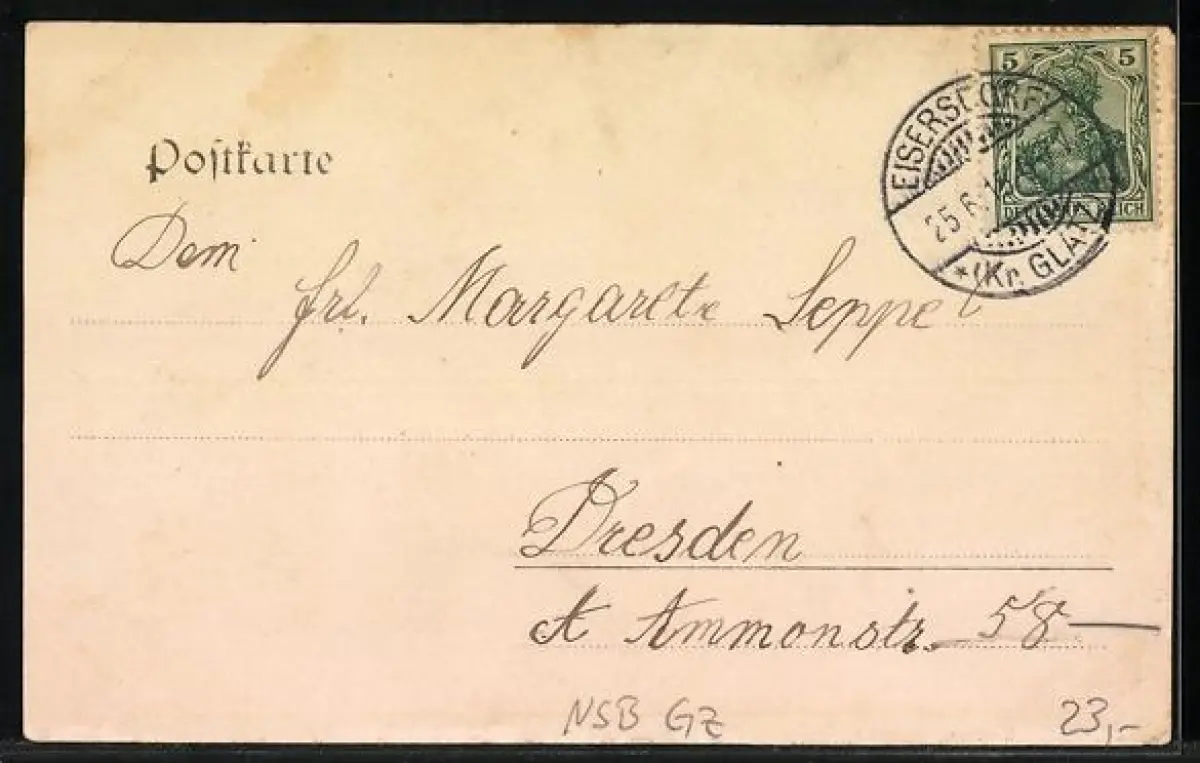 Postkarte
5 5
EISERSDORF
25.6.
REICH
*(Kr. GLATZ)
Dem
Frl. Margarete Seppelt
Dresden
A Ammonstr. 58
NSB GZ 23,-